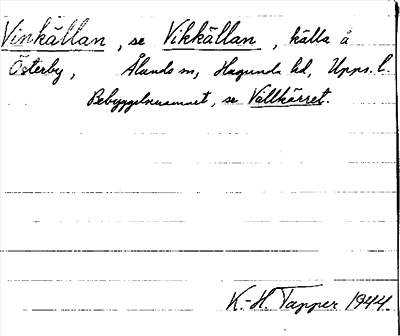 Vinkällan, se Vikkällan, källa å
Österby, Ålands sn, Hagunda hd, Upps. l.
Bebyggelsenamnet, se Vallkärret.
K.-H. Tapper 1944.